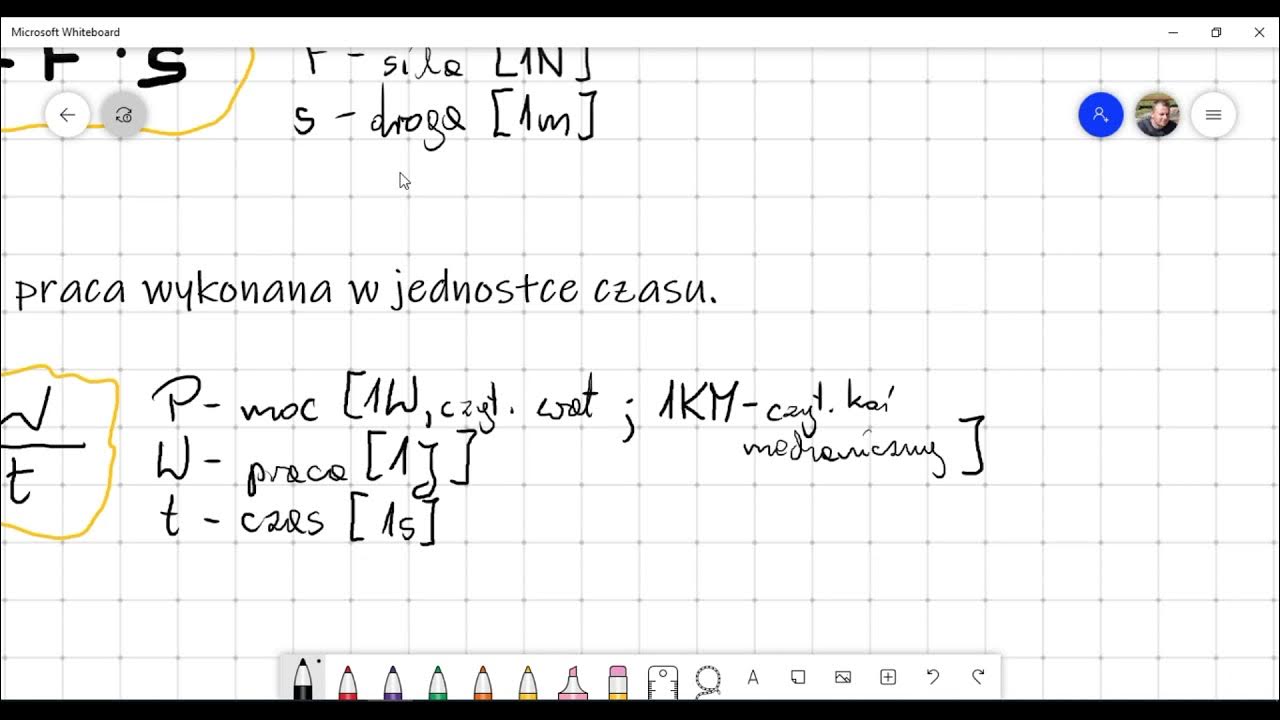 Microsoft Whiteboard
F · s
F - siła [1N]
s - droga [1m]
praca wykonana w jednostce czasu.
W
t
P - moc [1W, czyt. wat ; 1KM - czyt. koń
mechaniczny]
W - praca [1J]
t - czas [1s]
A